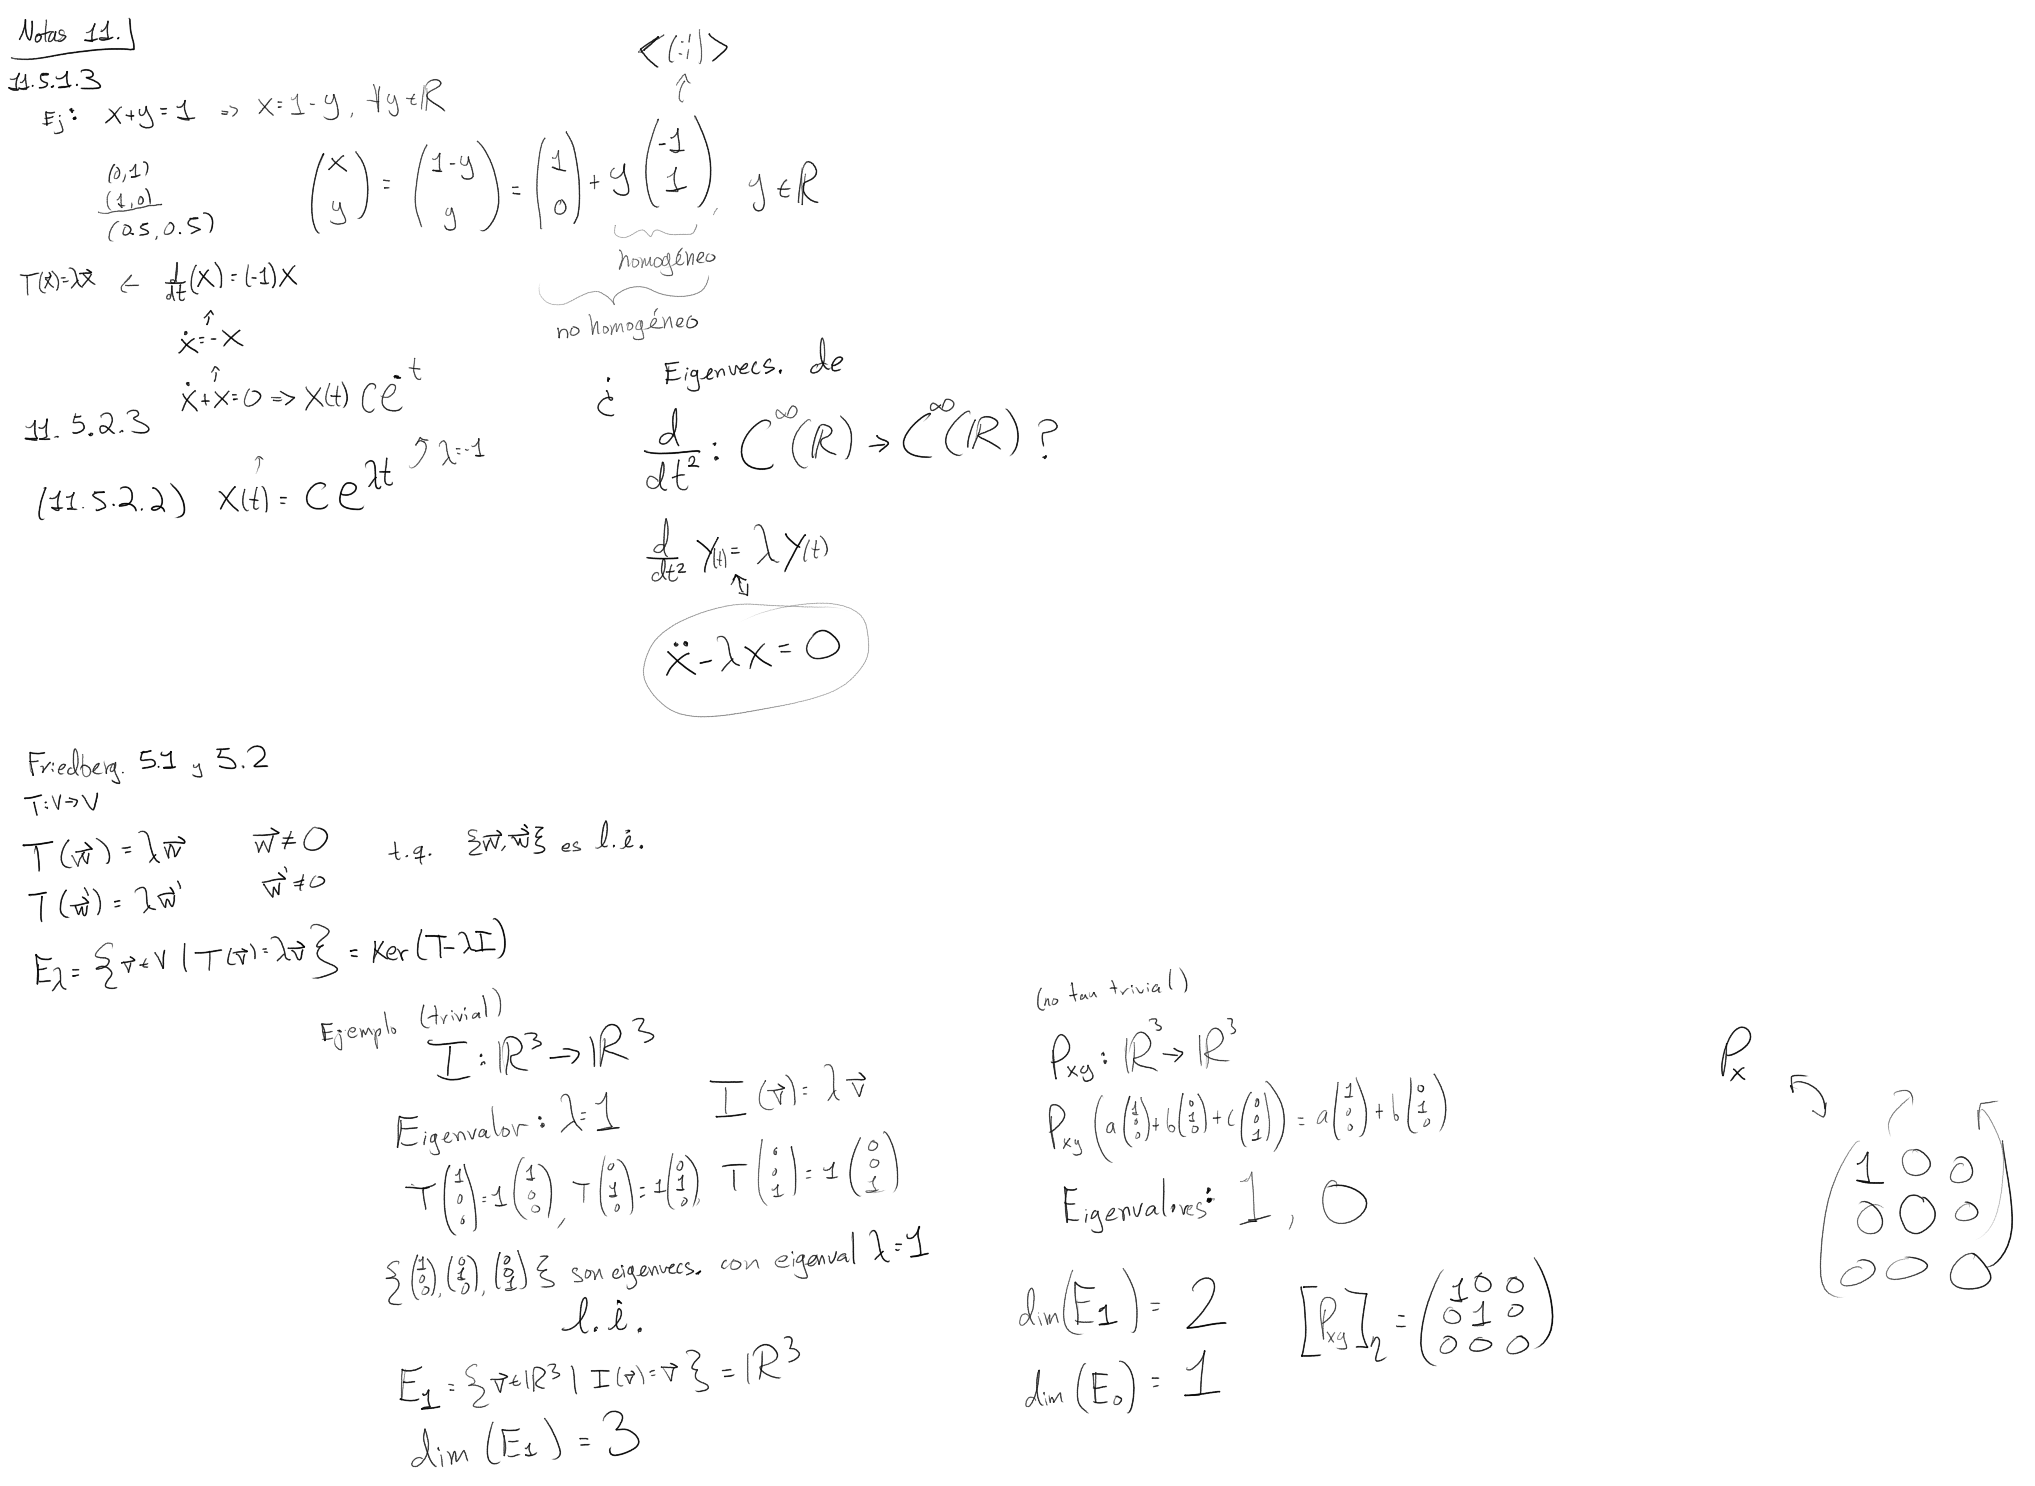 Notas 11.
11.5.1.3
Ej: x+y=1 => x=1-y, ∀y∈ℝ
(0,1)
(1,0)
(0.5,0.5)
<(-1 1)>
(x y) = (1-y y) = (1 0) + y (-1 1), y∈ℝ
homogéneo
no homogéneo
T(x⃗)=λx⃗ ← d/dt(x)=(-1)x
↑
ẋ=-x
↑
ẋ+x=0 => x(t) ce^-t
11.5.2.3
↑ ⤴ λ=-1
(11.5.2.2) x(t)= ce^λt
¿ Eigenvecs. de
d/dt²: C^∞(ℝ) → C^∞(ℝ) ?
d/dt² y(t)= λy(t)
⇕
ẍ-λx=0
Friedberg. 5.1 y 5.2
T:V→V
T(w⃗)=λw⃗ w⃗≠0 t.q. {w⃗,w⃗'} es l.i.
T(w⃗')=λw⃗' w⃗'≠0
E_λ={v⃗∈V | T(v⃗)=λv⃗} = Ker(T-λI)
Ejemplo (trivial)
I:ℝ³→ℝ³
Eigenvalor: λ=1 I(v⃗)=λv⃗
T(1 0 0)=1(1 0 0), T(0 1 0)=1(0 1 0), T(0 0 1)=1(0 0 1)
{(1 0 0),(0 1 0),(0 0 1)} son eigenvecs. con eigenval λ=1
l.i.
E₁={v⃗∈ℝ³ | I(v⃗)=v⃗} = ℝ³
dim(E₁)=3
(no tan trivial)
P_xy: ℝ³→ℝ³
P_xy(a(1 0 0)+b(0 1 0)+c(0 0 1)) = a(1 0 0)+b(0 1 0)
Eigenvalores: 1, 0
dim(E₁)=2
dim(E₀)=1
[P_xy]_η = (1 0 0
0 1 0
0 0 0)
P_x
(1 0 0
0 0 0
0 0 0)